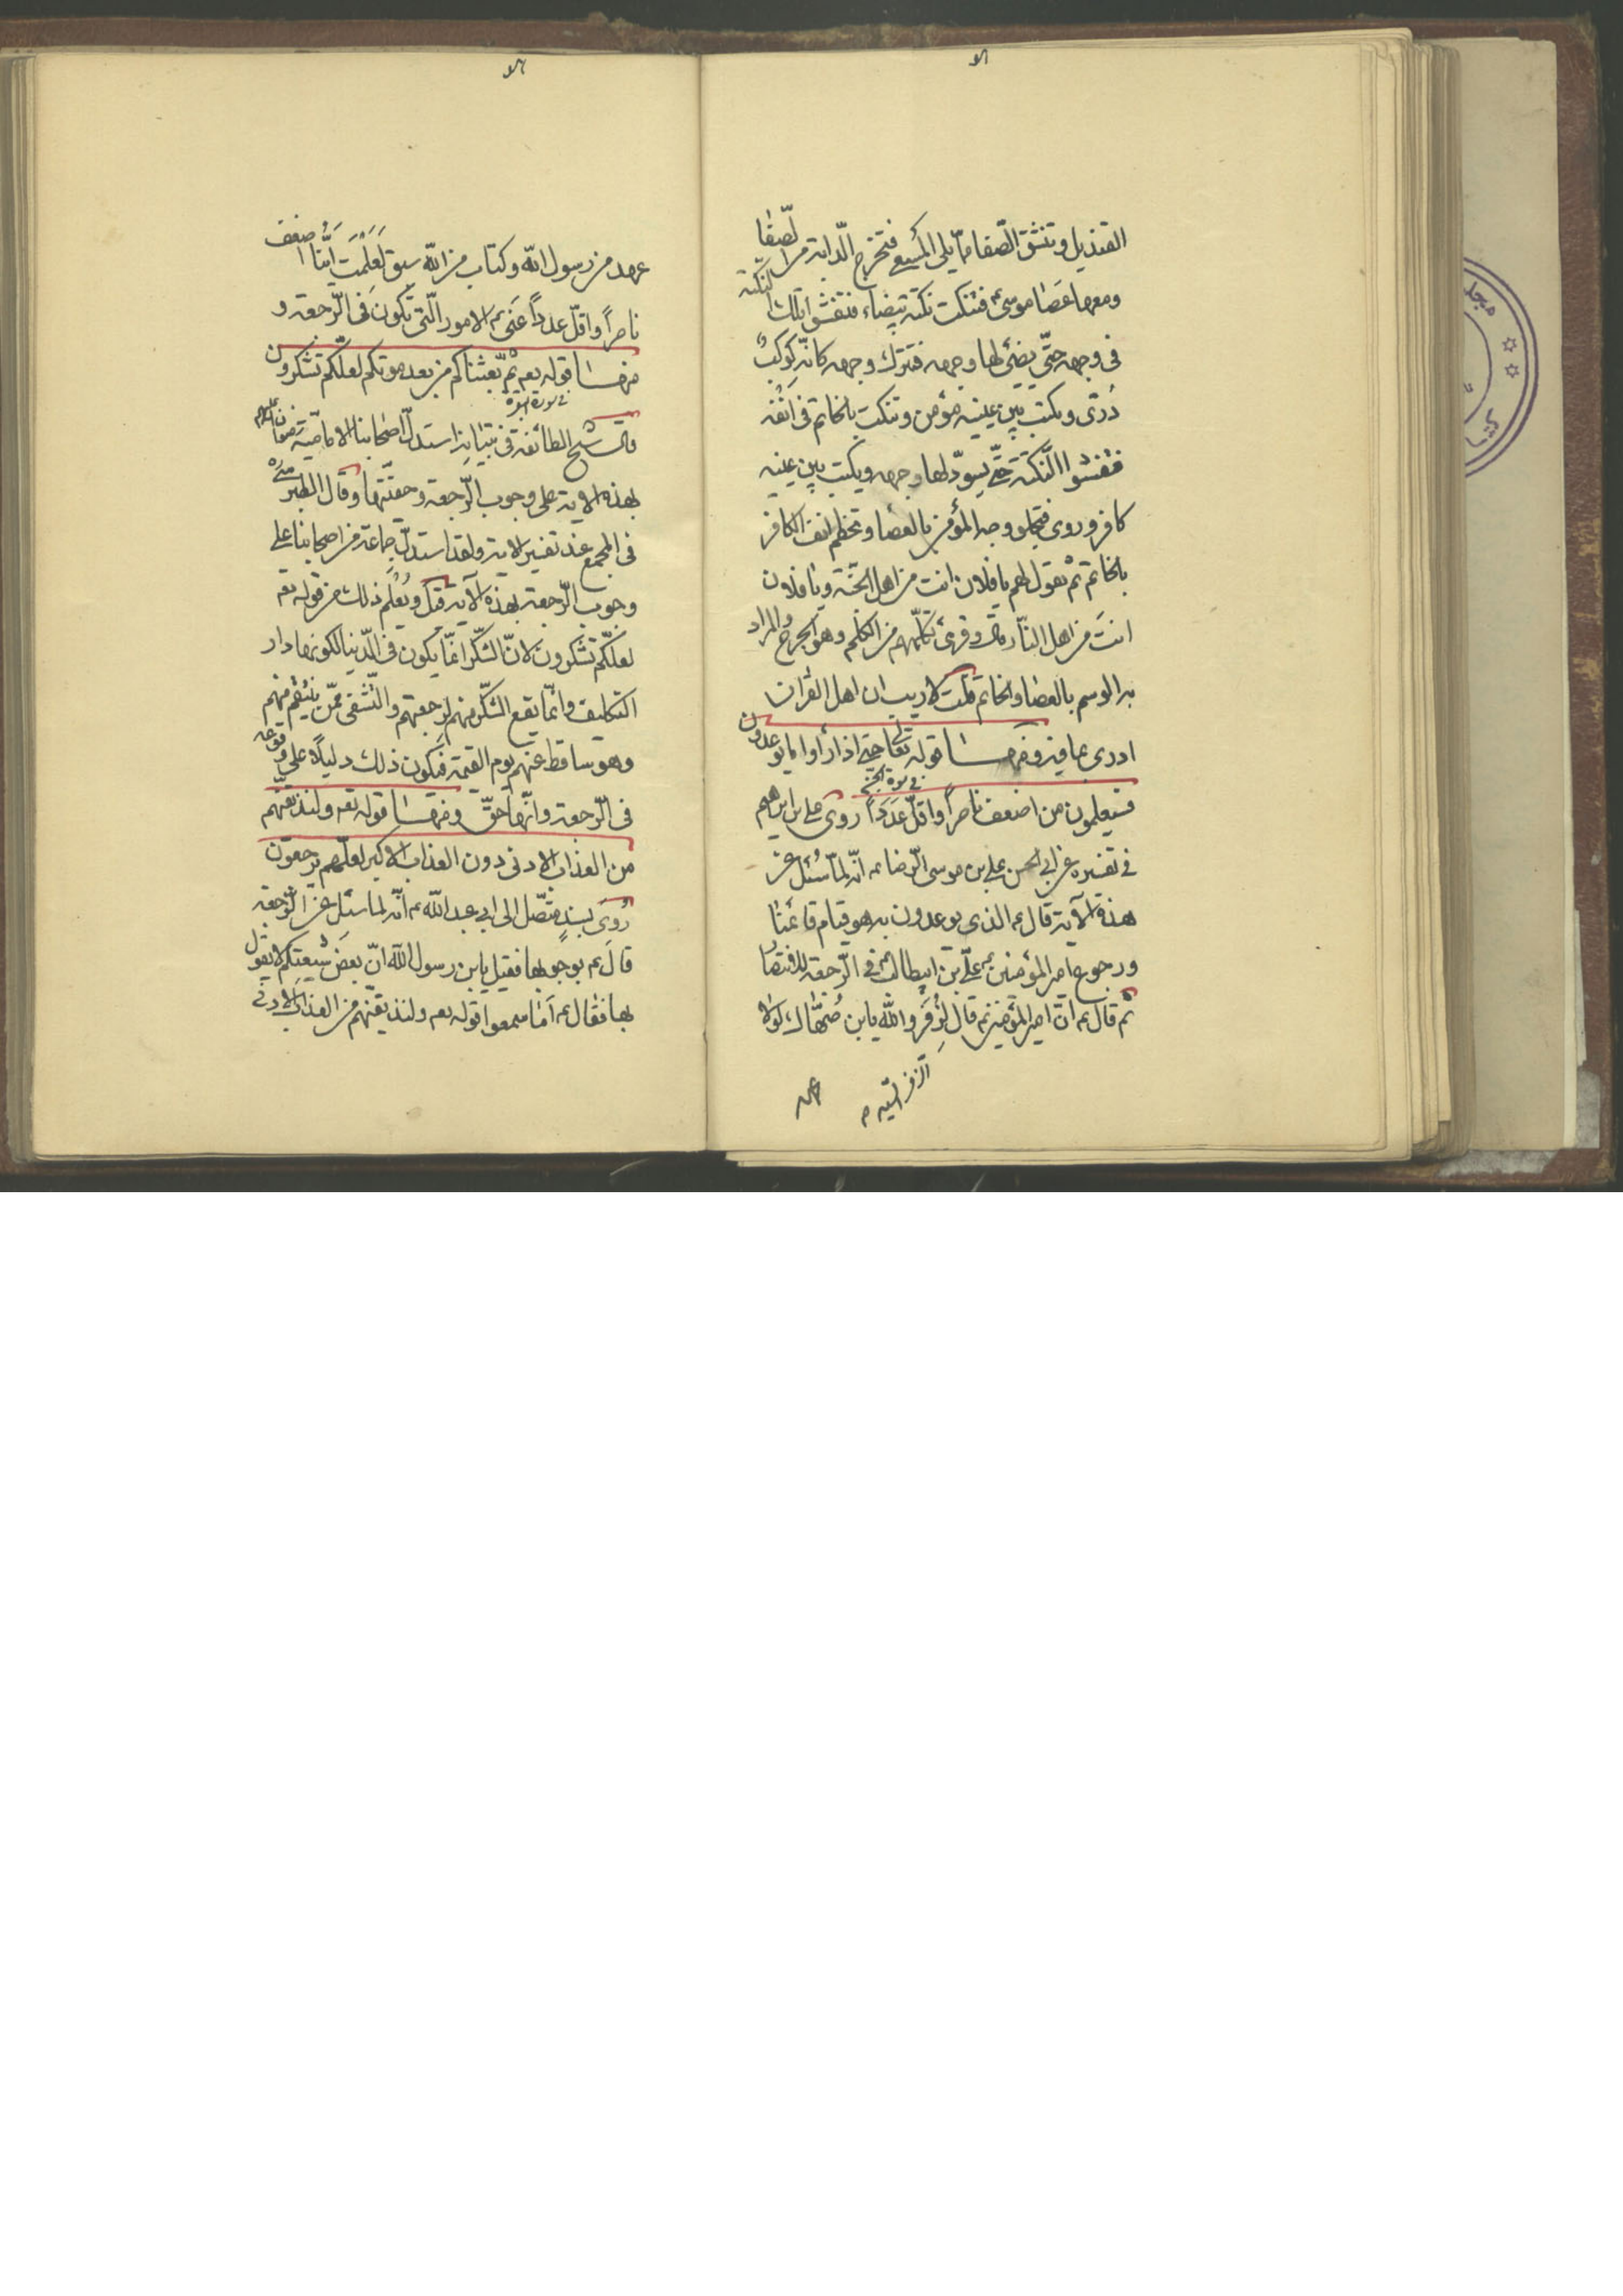 القنديل وتنشق الصفا مما يلى المسعى فتخرج الدابة من الصفا
ومعها عصا موسىٰ ع فتنكت نكتة بيضاء فتفشوا تلك النكتة
فى وجهه حتّى يضئ لها وجهه فتترك وجهه كانّه كوكبٌ
دُرّى ويكتب بين عينيه مؤمن وتنكت بالخاتم فى انفه
فتفشوا النّكتة حتّى يسودّ لها وجهه ويكتب بين عينيه
كافر وروى فتجلو وجه المؤمن بالعصا وتخطم انف الكافر
بالخاتم ثم تقول لهم يا فلان انت من اهل الجنّة ويا فلان
انتَ من اهل النّار قال وقرئ تكلمهم من الكلم وهو الجرح والمراد
به الوسم بالعصا والخاتم قلت لا ريب ان اهل القران
ادرى بما فيه ومنها قوله تعالى حتى اذا رأوا ما يوعدون
فى سورة الجن
فسيعلمون من اضعف ناصراً واقلّ عَدَداً روى على بن ابرهيم
فى تفسيره عن ابى الحسن على بن موسى الرّضا ع انّه لمّا سُئل عن
هذه الآية قال ع الذى يوعدون به هو قيام قائمنا
ورجوع امير المؤمنين ع علىّ بن ابيطالب ع فى الرّجعة للاقتصا
ثم قال ع انّ امير المؤمنين ع قال لِزُفَر والله يابن صُهّاك لولا
عهد
عهد من رسول الله وكتاب من الله سبق لَعَلِمْتَ ايّنا اضعف
ناصراً واقلّ عدداً عَنَى ع الامور الّتى تكون فى الرّجعة و
منها قوله تعه ثمّ بعثناكم من بعد موتكم لعلّكم تشكرون
فى سورة البقرة
قال شيخ الطائفة فى تبيانه استدلّ اصحابنا الامامية رضوان الله عليهم
بهذه الاية على وجوب الرّجعة وحقّيّتها وقال الطبرسى
فى المجمع عند تفسير الاية ولقد استدلّ جماعة من اصحابنا على
وجوب الرّجعة بهذه الآية قيل ويُعْلَم ذلك من قوله تعه
لعلكّم تشكرون لانّ الشكّر انمّا يكون فى الدّنيا لكونها دار
التكليف وانمّا يقع الشكّر منهم لرجعتهم والتّشفى ممّن ينتقم منهم
وهو ساقط عنهم يوم القيمة فيكون ذلك دليلاً على وقوعه
فى الرّجعة وانّها حقّ ومنها قوله تعه ولنذيقنّهم
من العذاب الادنى دون العذاب الاكبر لعلّهم يرجعون
رُوِىَ بسندٍ متصّل الى ابى عبد الله ع انّه لما سئل عن الرّجعة
قال ع بوجوبها فقيل يابن رسول الله انّ بعض شيعتكم لا يقول
بها فقال ع اَما سمعوا قوله تعه ولنذيقنّهم من العذاب الادنى